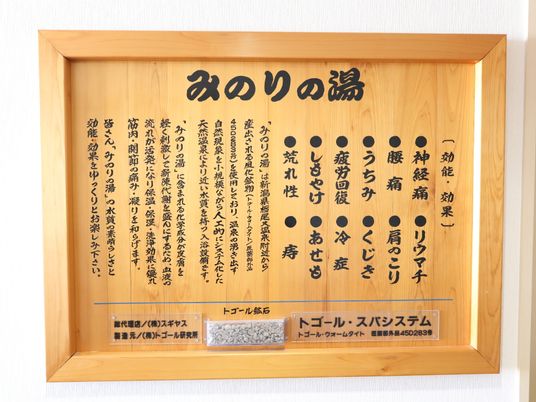 みのりの湯
〔効能・効果〕
●神経痛 ●リウマチ
●腰痛 ●肩のこり
●うちみ ●くじき
●疲労回復 ●冷症
●しもやけ ●あせも
●荒れ性 ●痔
"みのりの湯"は新潟県栃尾又温泉附近から
産出される風化鉱物(トゴール・ウォームタイト/医薬部外品
45D283号)を使用しており、温泉の湧き出す
自然現象を小規模ながら人工的にシステム化した
天然温泉により近い水質を持つ入浴設備です。
"みのりの湯"に含まれる化学成分が皮膚を
軽く刺激して新陳代謝を盛んにするため、血液の
流れが活発になり保温・保湿・洗浄効果に優れ
筋肉・関節の痛み・凝りを和らげます。
皆さん、"みのりの湯"の水質の素晴らしさと
効能・効果をゆっくりとお楽しみ下さい。
トゴール鉱石
総代理店/(株)スギヤス
製造元/(株)トゴール研究所
トゴール・スパシステム
トゴール・ウォームタイト 医薬部外品45D283号